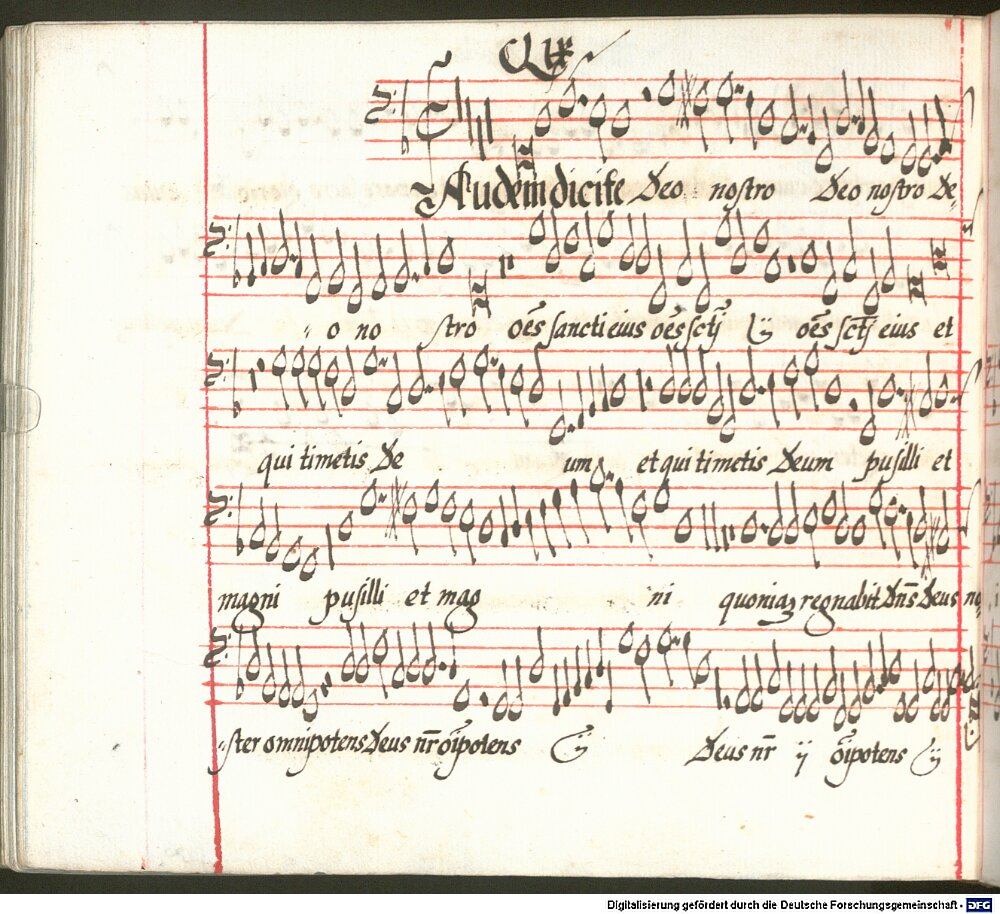 CLIX
Laudem dicite Deo nostro Deo nostro De-
-o no stro oēs sancti eius oēs sctj̄ ij oēs sctj̄ eius et
qui timetis De um et qui timetis Deum pusilli et
magni pusilli et mag ni quoniaʒ regnabit Dn̄s Deus no-
-ster omnipotens Deus nr̄ oīpotens ij Deus nr̄ ij oīpotens ij
Digitalisierung gefördert durch die Deutsche Forschungsgemeinschaft - DFG